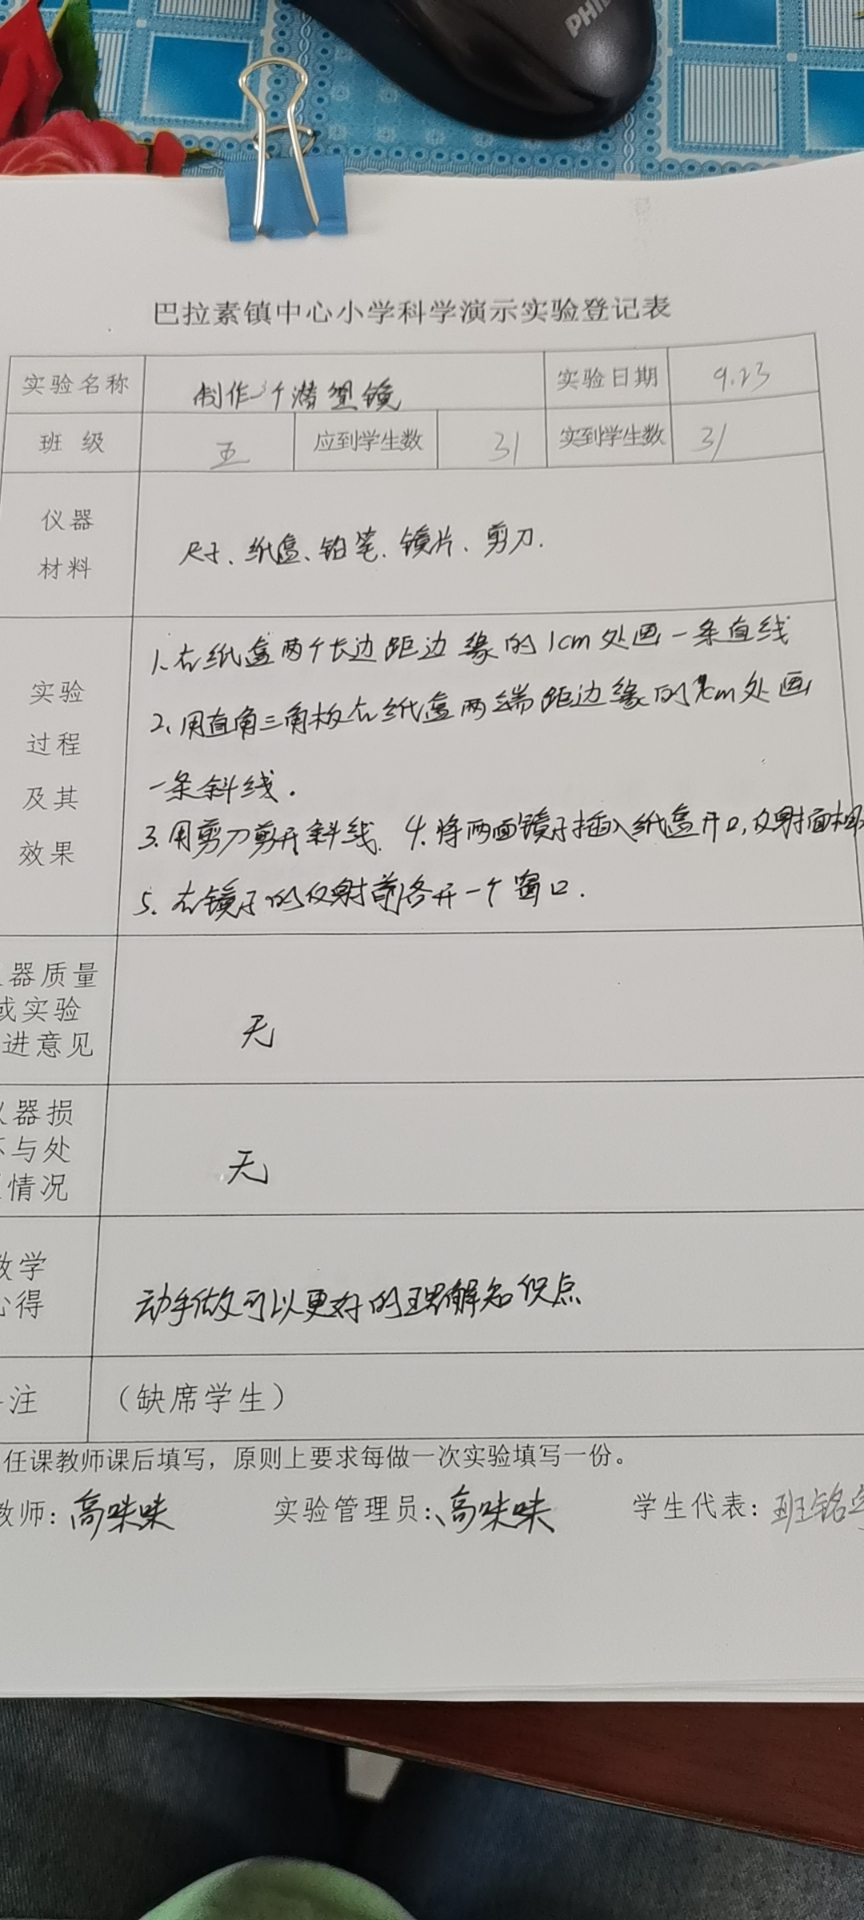 PHI
巴拉素镇中心小学科学演示实验登记表
实验名称 制作个潜望镜 实验日期 9.23
班 级 五 应到学生数 31 实到学生数 31
仪器
材料
尺子、纸盒、铅笔、镜片、剪刀.
实验
过程
及其
效果
1.在纸盒两个长边距边缘的1cm处画一条直线
2、用直角三角板在纸盒两端距边缘的1cm处画
一条斜线.
3.用剪刀剪开斜线. 4.将两面镜子插入纸盒开口,反射面相
5、在镜子的反射前各开一个窗口.
器质量
或实验
进意见
无
器损
与处
情况
无
教学
心得
动手做又可以更好的理解知识点
注 （缺席学生）
任课教师课后填写，原则上要求每做一次实验填写一份。
教师: 高咪咪 实验管理员: 高咪咪 学生代表: 班铭